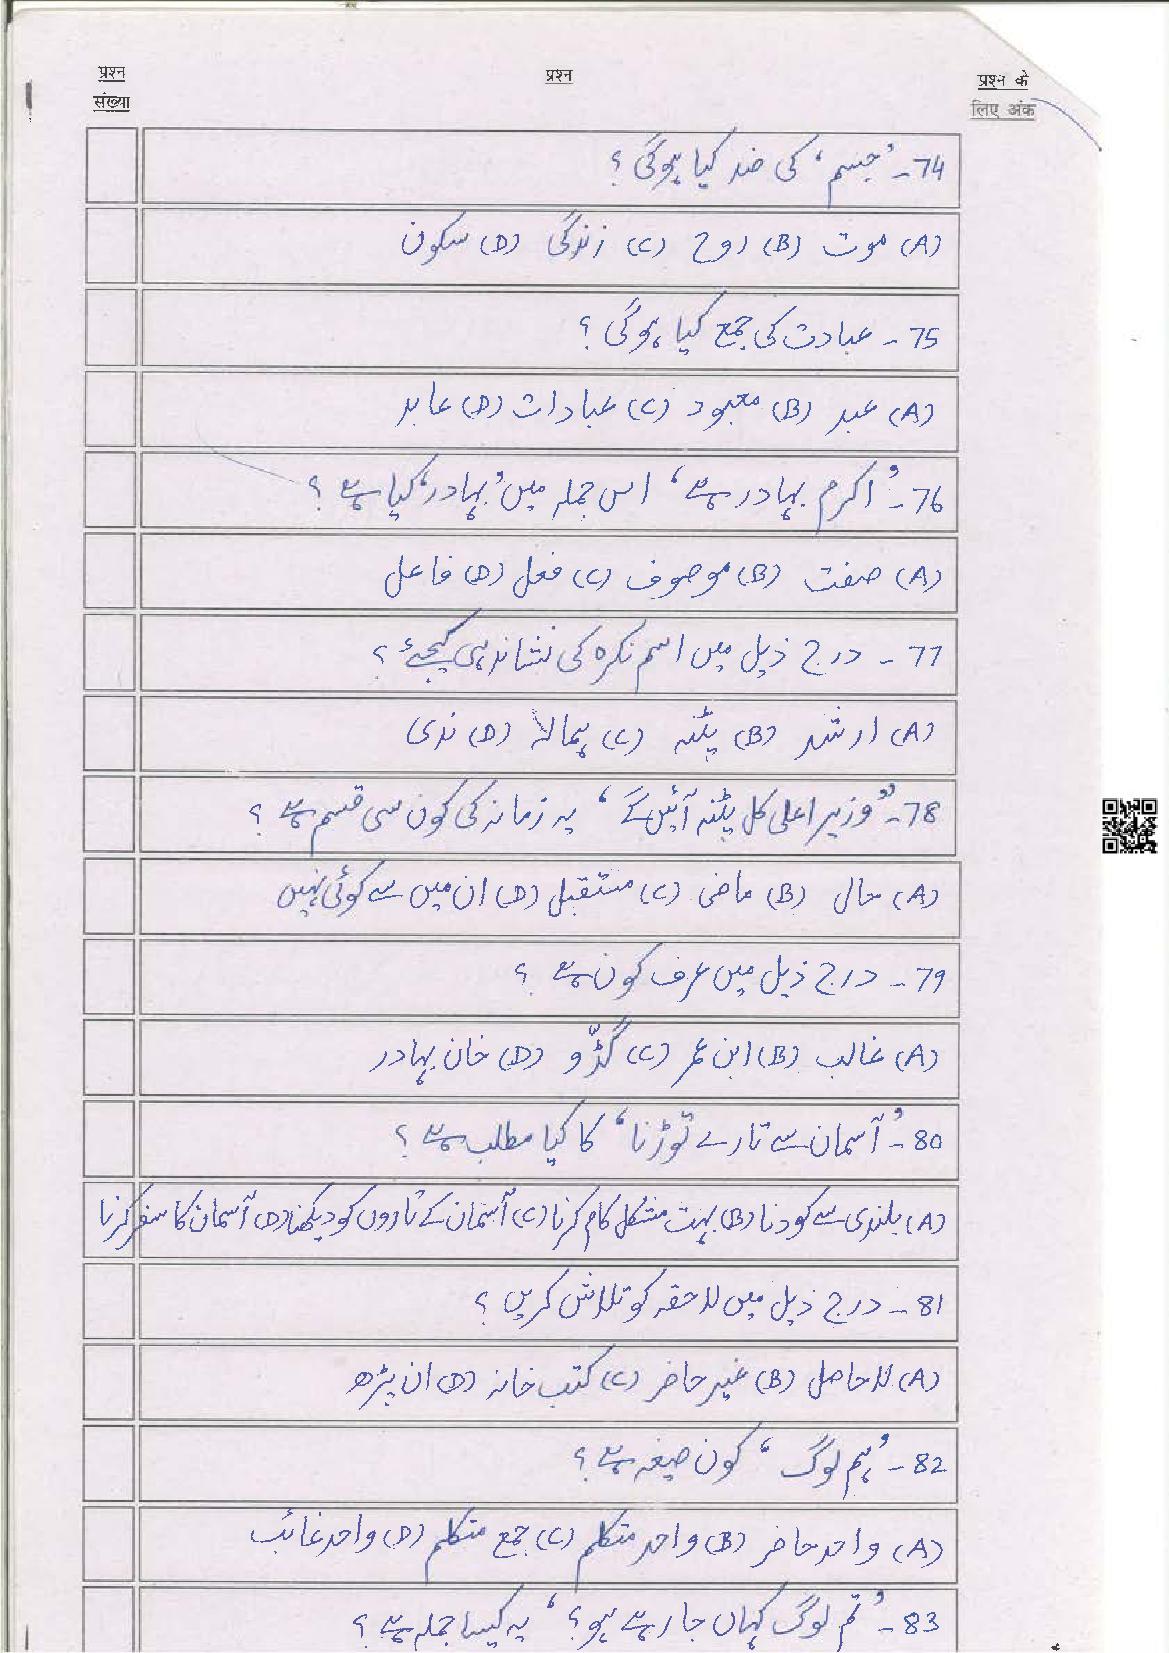 प्रश्न संख्या
प्रश्न
प्रश्न के लिए अंक
74- ’جسم‘ کی ضد کیا ہوگی؟
(A) موت (B) روح (C) زندگی (D) سکون
75- عبادت کی جمع کیا ہوگی؟
(A) عبد (B) معبود (C) عبادات (D) عابد
76- ’اکرم بہادر ہے‘ اس جملہ میں ’بہادر‘ کیا ہے؟
(A) صفت (B) موصوف (C) فعل (D) فاعل
77- درج ذیل میں اسم نکرہ کی نشاندہی کیجئے؟
(A) ارشد (B) پٹنہ (C) ہمالہ (D) ندی
78- ”وزیر اعلی کل پٹنہ آئیں گے‘ یہ زمانہ کی کون سی قسم ہے؟
(A) حال (B) ماضی (C) مستقبل (D) ان میں سے کوئی نہیں
79- درج ذیل میں عرف کون ہے؟
(A) غالب (B) ابن عمر (C) گڈّو (D) خان بہادر
80- ’آسمان سے تارے توڑنا‘ کا کیا مطلب ہے؟
(A) بلندی سے کودنا (B) بہت مشکل کام کرنا (C) آسمان کے تاروں کو دیکھنا (D) آسمان کا سفر کرنا
81- درج ذیل میں لاحقہ کو تلاش کریں؟
(A) لاحاصل (B) غیر حاضر (C) کتب خانہ (D) ان پڑھ
82- ’ہم لوگ‘ کون صیغہ ہے؟
(A) واحد حاضر (B) واحد متکلم (C) جمع متکلم (D) واحد غائب
83- ’تم لوگ کہاں جا رہے ہو؟‘ یہ کیسا جملہ ہے؟